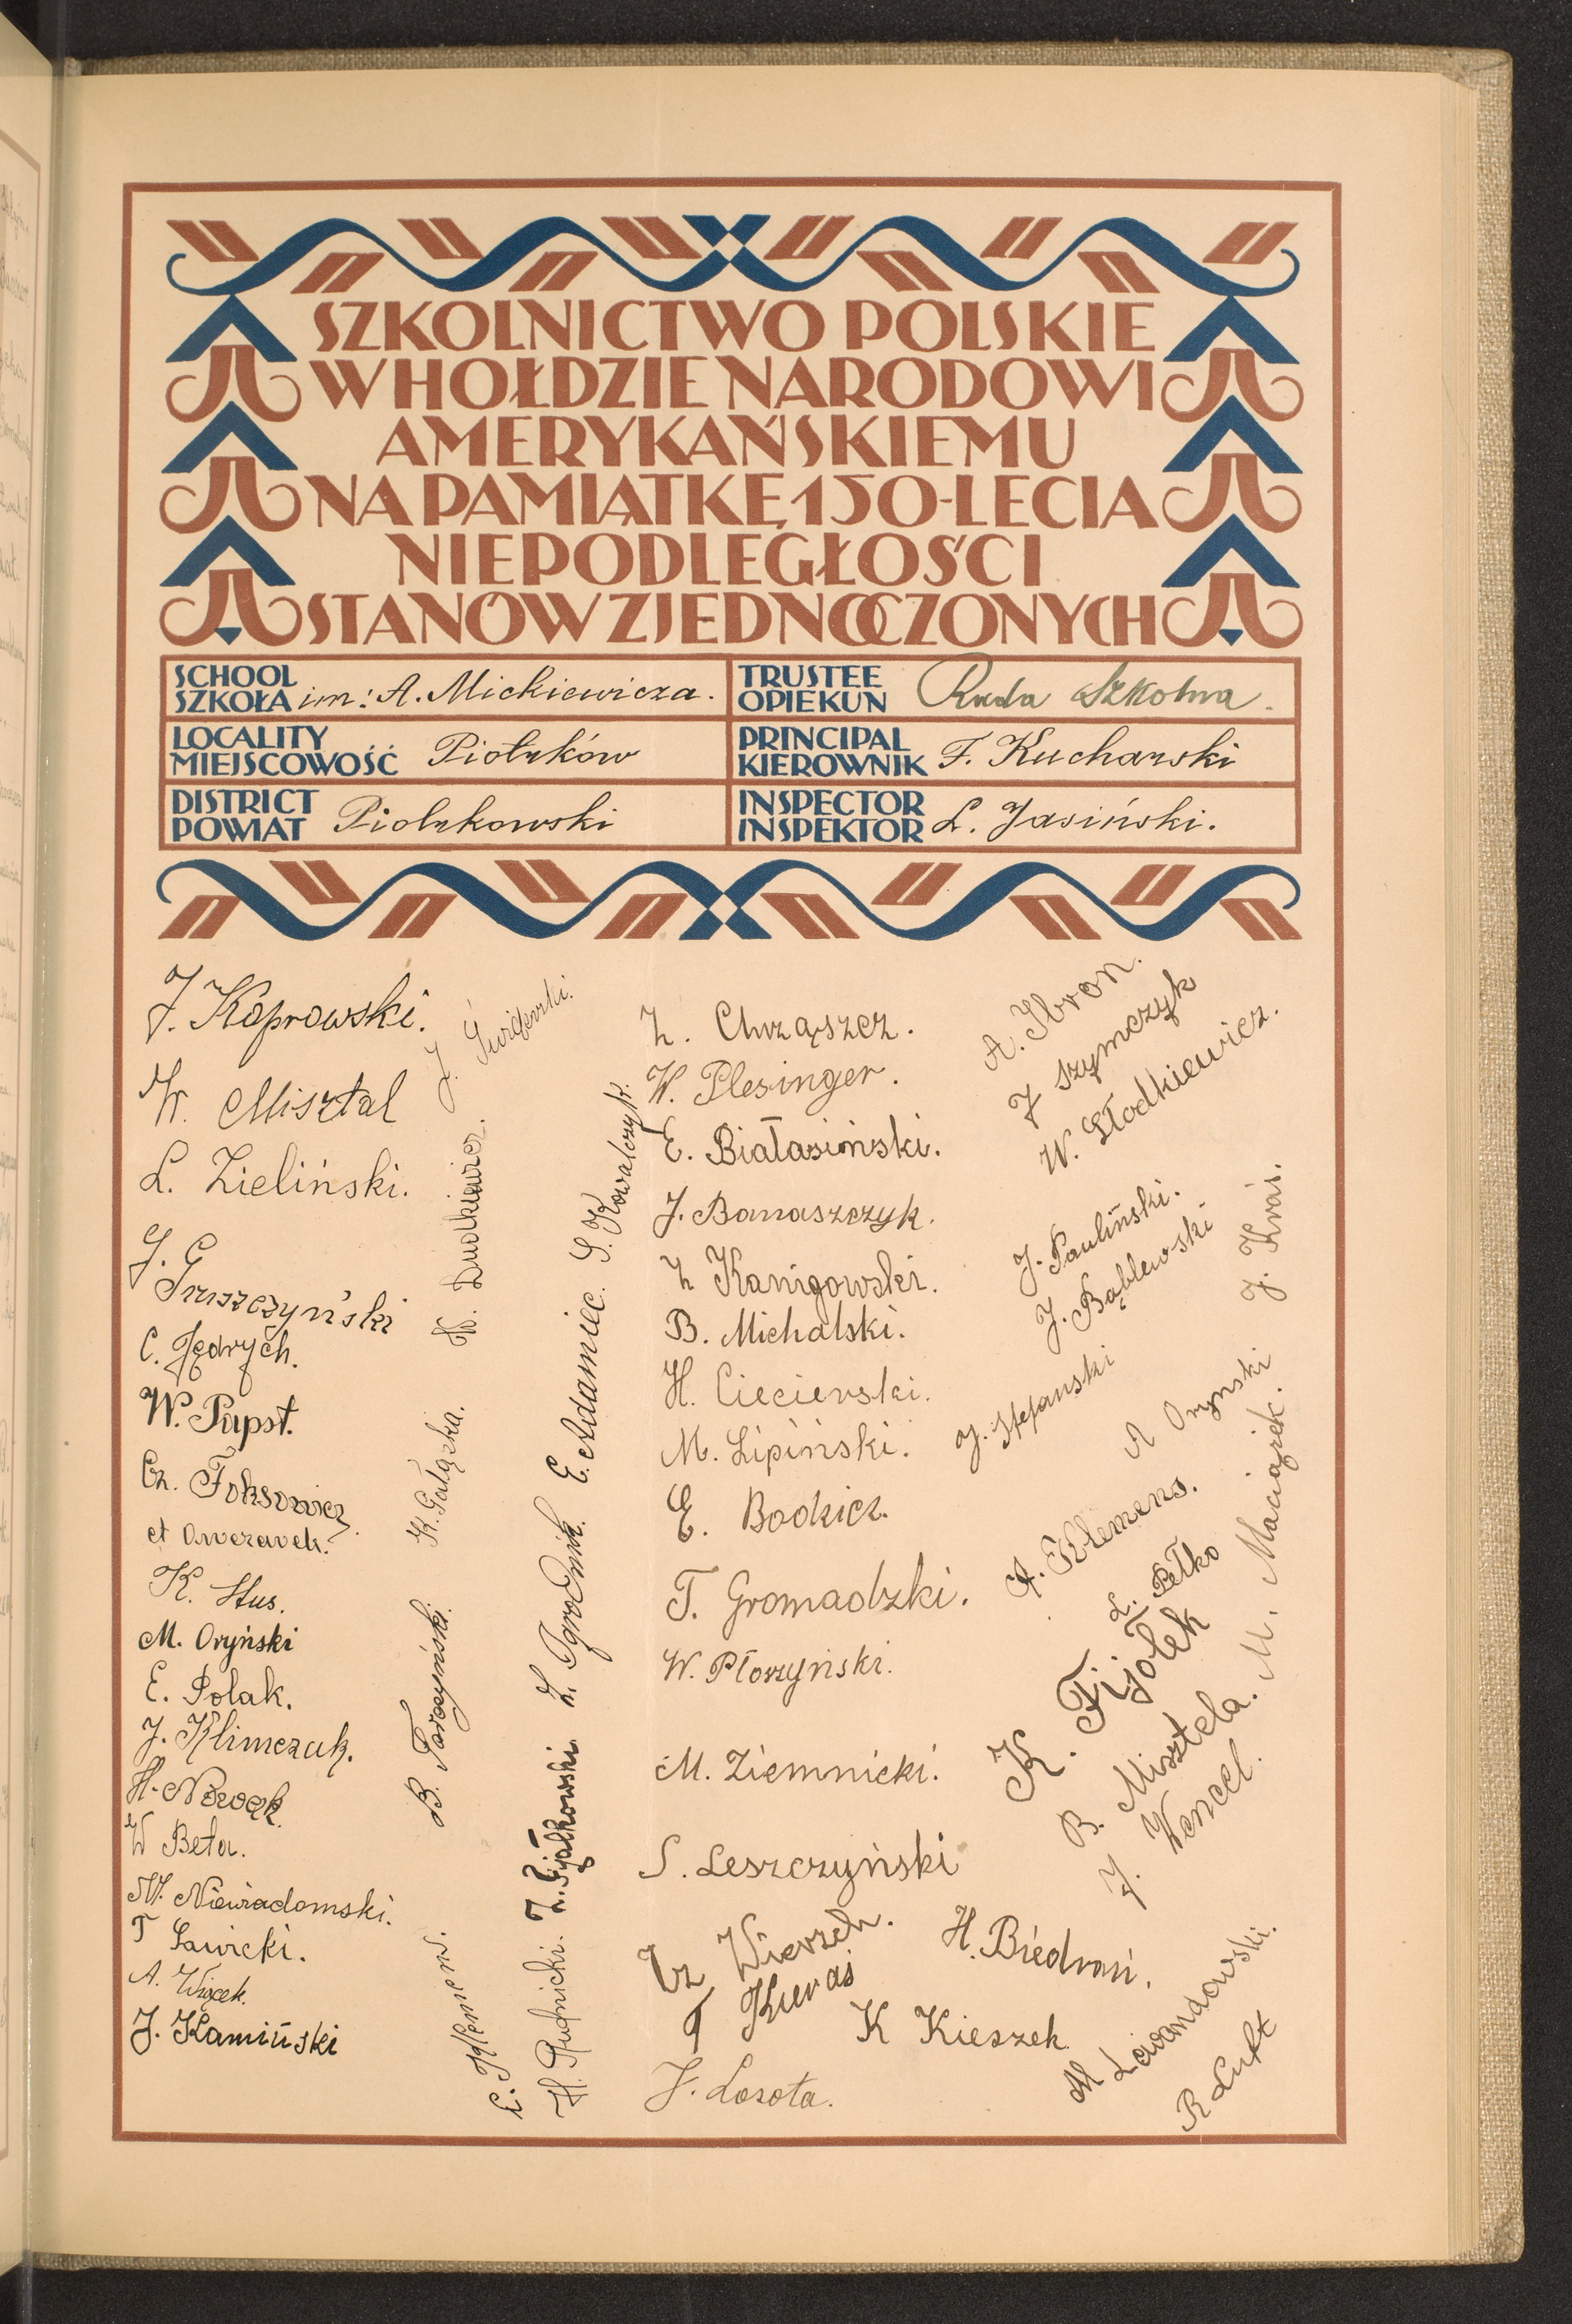 SZKOLNICTWO POLSKIE
W HOŁDZIE NARODOWI
AMERYKAŃSKIEMU
NA PAMIĄTKĘ 150-LECIA
NIEPODLEGŁOŚCI
STANÓW ZJEDNOCZONYCH
SCHOOL
SZKOŁA im: A. Mickiewicza.
TRUSTEE
OPIEKUN Rada Szkolna.
LOCALITY
MIEJSCOWOŚĆ Piotrków
PRINCIPAL
KIEROWNIK F. Kucharski
DISTRICT
POWIAT Piotrkowski
INSPECTOR
INSPEKTOR L. Jasiński.
J. Koprowski.
W. Misztal
L. Zieliński.
J. Gruszczyński
C. Jędrych.
W. Papst.
Cz. Foksowicz.
A Owczarek.
K. Stus.
M. Oryński
E. Polak.
J. Klimczak.
H. Nowak.
W Beta.
M. Niewiadomski.
T Sawicki.
A. Wiącek.
J. Kamiński
J. Świąterski.
W. Dudkiewicz.
K. Gałązka.
B. Taraszyński.
E. Klemens.
S. Kowalczyk.
E. Adamiec.
Z. Ogrodnik.
Z. Fijałkowski.
H. Rudnicki.
Z. Chrząszcz.
W. Plesinger.
E. Białasiński.
J. Banaszczyk.
Z Kanigowski.
B. Michalski.
H. Ciecierski.
M. Lipiński.
E. Bodzicz.
T. Gromadzki.
W. Płoszyński.
M. Ziemnicki.
S. Leszczyński
Cz Wierzch.
T Kuraś
K Kieszek
J. Losota.
A. Hbron.
J Szymczyk
W. Słodkiewicz.
J. Pauliński.
J. Bąblewski
J. Kraś.
J. Stefański
A Oryński
A. Klemens.
L. Pełko
K. Fijołek
M. Maciążek.
B. Misztela.
J. Wencel.
H. Biedroń.
M Lewandowski.
R Luft